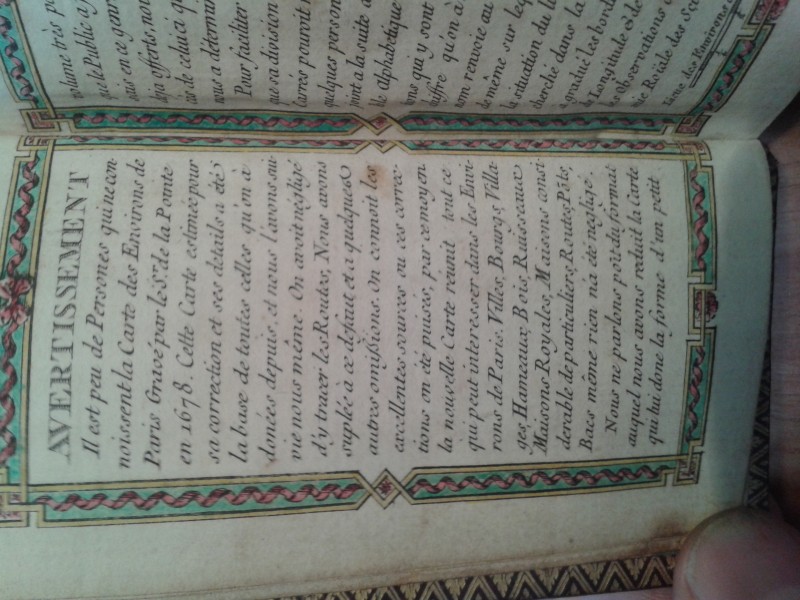 AVERTISSEMENT
Il est peu de Persones qui ne con-
noissent la Carte des Environs de
Paris Gravé par le Sr. de la Pointe
en 1678. Cette Carte estimée pour
sa correction et ses details a été
la base de toutes celles qu'on à
données depuis, et nous l'avons sui-
vie nous même. On avoit négligé
d'y tracer les Routes, Nous avons
suplée à ce défaut, et a quelques
autres omissions. On connoit les
excellentes sources ou ces correc-
tions on été puisés, par ce moyen
la nouvelle Carte réunit tout ce
qui peut interesser dans les Envi-
rons de Paris. Villes, Bourgs, Villa-
ges, Hameaux, Bois, Ruisseaux
Maisons Royales, Maisons consi-
derable de particuliers, Routes, Pôts,
Bacs même rien n'a été négligé.
Nous ne parlons point du format
auquel nous avons reduit la Carte
qui lui done la forme d'un petit
volume très
que le Public a
eus en ce genre
déja offerts, nou
té de celui ci qu
nous a détermin
Pour faciliter
que sa division
Carrés pouroit
quelques person
joint a la suite
ble Alphabétique
rons qui y sont
chiffre qu'on à
nom renvoie au
le même sur leq
la situation du li
cherche dans la
gradué les bords
la Longitude & de
les Observations
mie Roïale des Sci
Carte des Environs